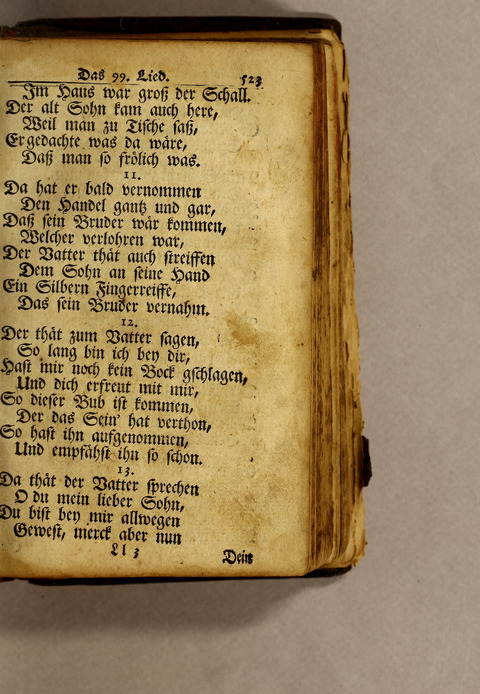 Das 99. Lied. 523
Im Haus war groß der Schall.
Der alt Sohn kam auch here,
Weil man zu Tische saß,
Er gedachte was da wäre,
Daß man so frölich was.
11.
Da hat er bald vernommen
Den Handel gantz und gar,
Daß sein Bruder wär kommen,
Welcher verlohren war,
Der Vatter thät auch streiffen
Dem Sohn an seine Hand
Ein Silbern Fingerreiffe,
Das sein Bruder vernahm.
12.
Der thät zum Vatter sagen,
So lang bin ich bey dir,
Hast mir noch kein Bock gschlagen,
Und dich erfreut mit mir,
So dieser Bub ist kommen,
Der das Sein' hat verthon,
So hast ihn aufgenommen,
Und empfähst ihn so schon.
13.
Da thät der Vatter sprechen
O du mein lieber Sohn,
Du bist bey mir allwegen
Gewest, merck aber nun
Ll 3 Dein